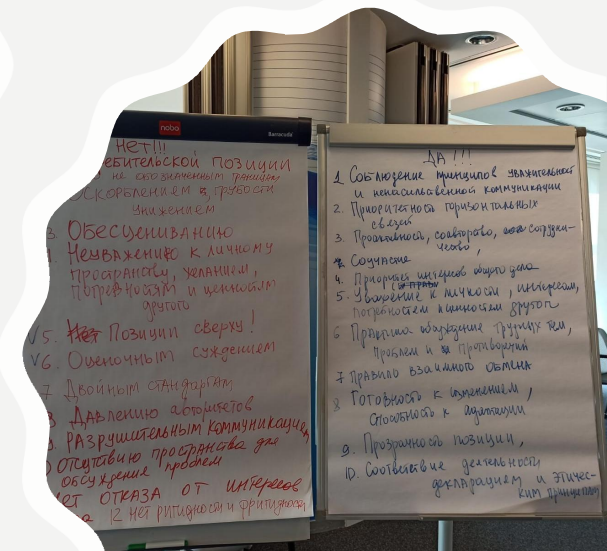 nobo
НЕТ!!!
ЕБИТЕЛЬСКОЙ ПОЗИЦИИ
НЕ ОБОЗНАЧЕННЫМ ГРАНИЦАМ
ОСКОРБЛЕНИЕМ, ГРУБОСТИ
УНИЖЕНИЕМ
3. ОБЕСЦЕНИВАНИЮ
НЕУВАЖЕНИЮ К ЛИЧНОМУ
ПРОСТРАНСТВУ, ЖЕЛАНИЕМ,
ПОТРЕБНОСТЯМ И ЦЕННОСТЯМ
другого
V5. Позиции сверху!
V6. Оценочным суждением
7 Двойным стандартам
Давлению авторитетов
РАЗРУШИТЕЛЬНЫМ КОММУНИКАЦИЕМ
ОТСУТСТВИЮ ПРОСТРАНСТВА для
обсуждения проблем
ЕТ ОТКАЗА ОТ ИНТЕРЕСОВ
12 НЕТ РИГИДНОСТИ И ФРИГИДНОСТИ
ДА!!!
1. Соблюдение принципов уважительной
и ненасильственной коммуникации
2. Приоритетность горизонтальных
связей
3. Проактивность, соавторство, сотрудни-
чество,
Соучастие
4. Приоритет интересов общего дела
5. Уважение к личности, интересам,
потребностям и ценностям других
6 Практика обсуждение трудных тем,
проблем и противоречий
7 Правило взаимного обмена
8 Готовность к изменением,
способность к адаптации
9. Прозрачность позиции,
10. Соответствие деятельности
декларацием и этичес-
ким принципам